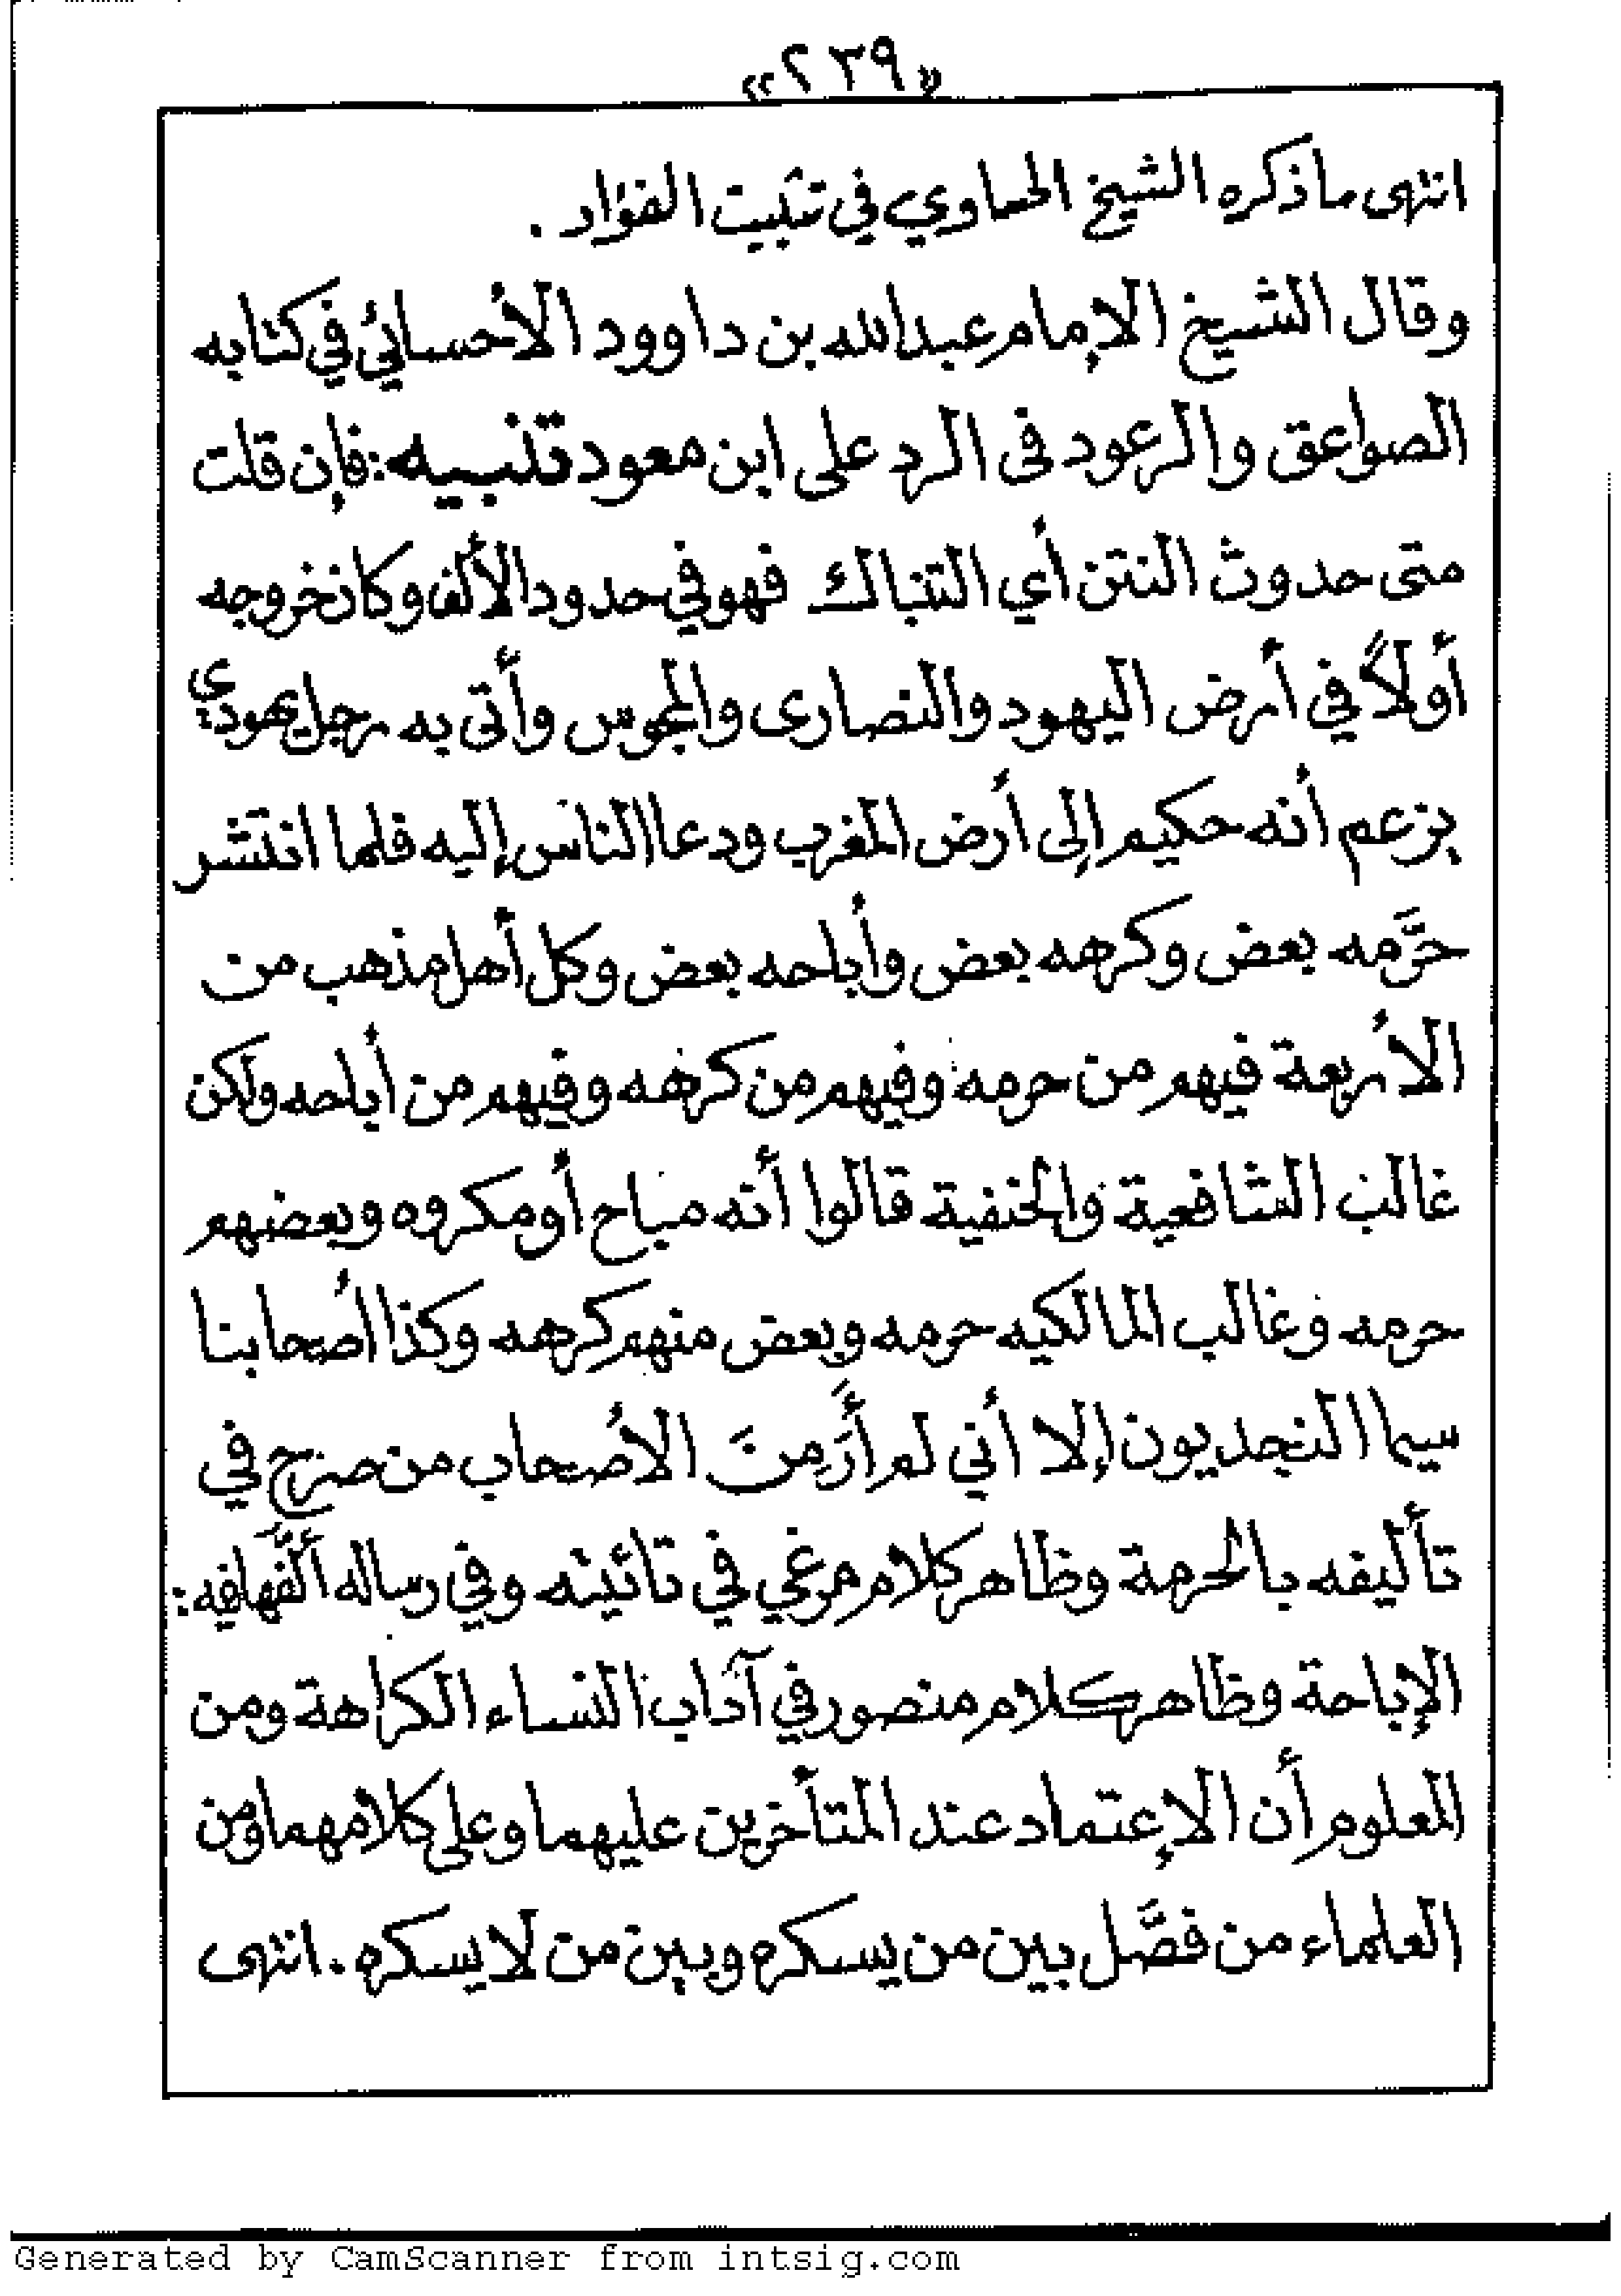 «٢٣٩»
انتهى ماذكره الشيخ الحساوي في تثبيت الفؤاد .
وقال الشيخ الإمام عبدالله بن داوود الأحسائي في كتابه
الصواعق والرعود في الرد على ابن معود تنبيه : فإن قلت
متى حدوث النتن أي التنباك فهو في حدود الألف وكان خروجه
أولاً في أرض اليهود والنصارى والمجوس وأتى به رجل يهودي
يزعم أنه حكيم إلى أرض المغرب ودعا الناس إليه فلما انتشر
حرَّمه بعض وكرهه بعض وأباحه بعض وكل أهل مذهب من
الأربعة فيهم من حرمه وفيهم من كرهه وفيهم من أباحه ولكن
غالب الشافعية والحنفية قالوا أنه مباح أو مكروه وبعضهم
حرمه وغالب المالكيه حرمه وبعض منهم كرهه وكذا أصحابنا
سيما النجديون إلا أني لم أَرَ مِنَ الأصحاب من صرح في
تأليفه بالحرمة وظاهر كلام مرعي في تائيته وفي رساله ألَّفها فيه :
الإباحة وظاهر كلام منصور في آداب النساء الكراهة ومن
المعلوم أن الإعتماد عند المتأخرين عليهما وعلى كلامهما ومن
العلماء من فصَّل بين من يسكره وبين من لا يسكره . انتهى
Generated by CamScanner from intsig.com